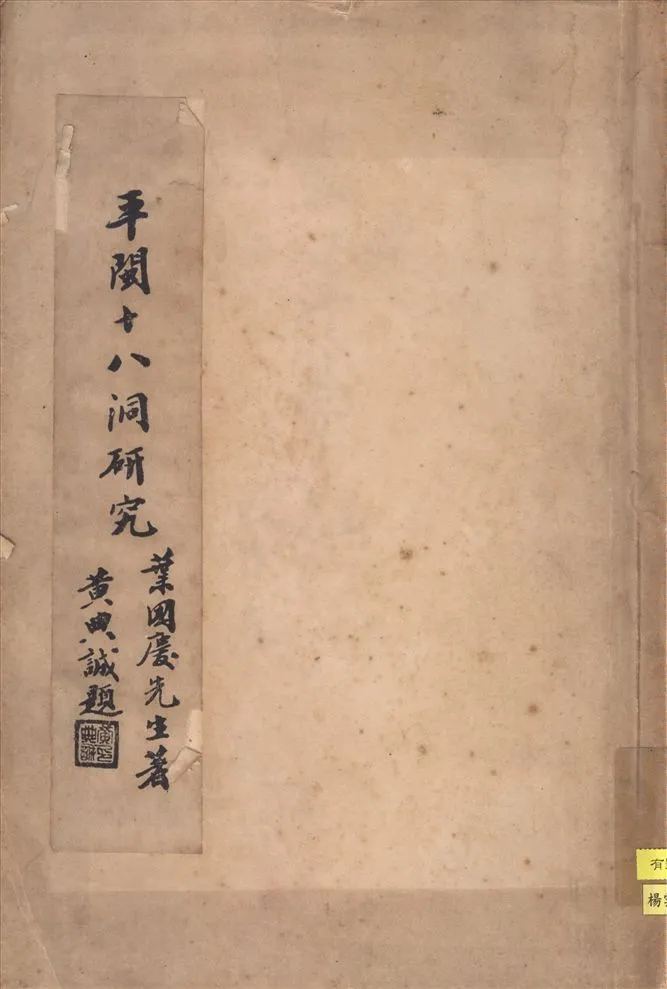 平閩十八洞研究
葉國慶先生著
黃典誠題
有
楊